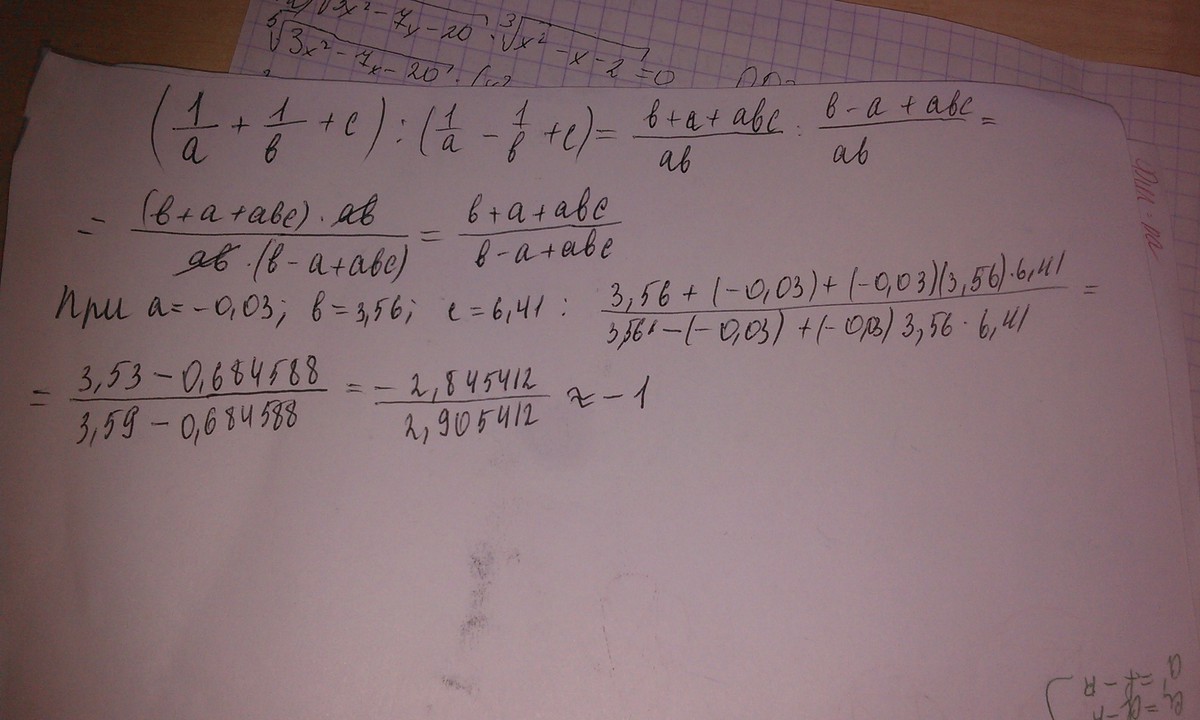 √3x²-7x-20 · ∛x²-x-2 = 0
⁵√3x²-7x-20 ·
(1/a + 1/в + c) : (1/a - 1/в + c) = (в+a+aвc)/(aв) : (в-a+aвc)/(aв) =
= ((в+a+aвc)·aв)/(aв·(в-a+aвc)) = (в+a+aвc)/(в-a+aвc)
При a=-0,03; в=3,56; c=6,41: (3,56+(-0,03)+(-0,03)(3,56)·6,41)/(3,56-(-0,03)+(-0,03)3,56·6,41) =
= (3,53-0,684588)/(3,59-0,684588) = - 2,845412/2,905412 ≈ -1